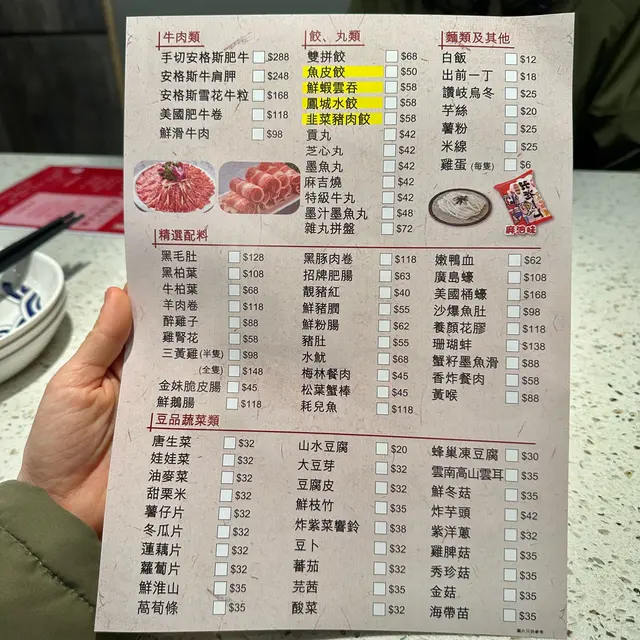 牛肉類
手切安格斯肥牛 $288
安格斯牛肩胛 $248
安格斯雪花牛粒 $168
美國肥牛卷 $118
鮮滑牛肉 $98
餃、丸類
雙拼餃 $68
魚皮餃 $50
鮮蝦雲吞 $58
鳳城水餃 $58
韭菜豬肉餃 $58
貢丸 $42
芝心丸 $42
墨魚丸 $42
麻吉燒 $42
特級牛丸 $42
墨汁墨魚丸 $48
雜丸拼盤 $72
麵類及其他
白飯 $12
出前一丁 $18
讚岐烏冬 $25
芋絲 $20
薯粉 $25
米線 $25
雞蛋 (每隻) $6
麻油味
精選配料
黑毛肚 $128
黑柏葉 $108
牛柏葉 $68
羊肉卷 $118
醉雞子 $88
雞腎花 $58
三黃雞 (半隻) $98
(全隻) $148
金妹脆皮腸 $45
鮮鵝腸 $118
黑豚肉卷 $118
招牌肥腸 $63
靚豬紅 $40
鮮豬膶 $55
鮮粉腸 $62
豬肚 $55
水魷 $68
梅林餐肉 $45
松葉蟹棒 $45
耗兒魚 $118
嫩鴨血 $62
廣島蠔 $108
美國桶蠔 $168
沙爆魚肚 $98
養顏花膠 $118
珊瑚蚌 $138
蟹籽墨魚滑 $88
香炸餐肉 $58
黃喉 $88
豆品蔬菜類
唐生菜 $32
娃娃菜 $32
油麥菜 $32
甜粟米 $32
薯仔片 $32
冬瓜片 $32
蓮藕片 $32
蘿蔔片 $32
鮮淮山 $35
萵筍條 $35
山水豆腐 $20
大豆芽 $32
豆腐皮 $32
鮮枝竹 $35
炸紫菜響鈴 $38
豆卜 $32
蕃茄 $32
芫茜 $35
酸菜 $32
蜂巢凍豆腐 $30
雲南高山雲耳 $35
鮮冬菇 $35
炸芋頭 $42
紫洋蔥 $32
雞脾菇 $35
秀珍菇 $35
金菇 $35
海帶苗 $35
圖片只供參考